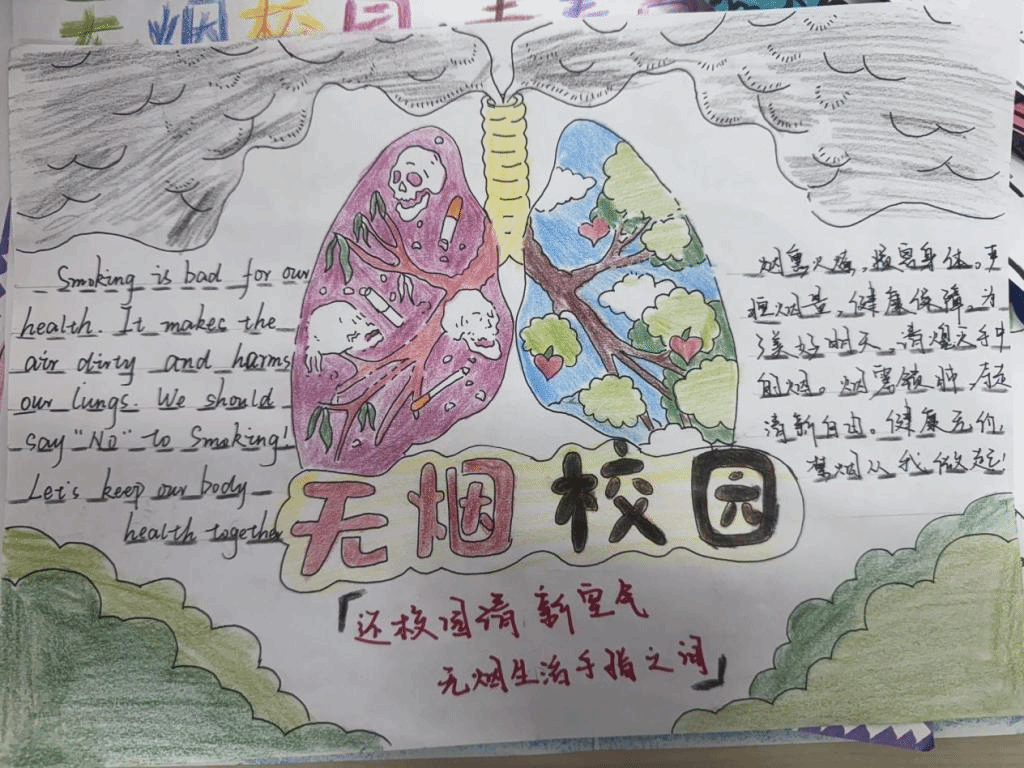 无烟校园
Smoking is bad for our
health. It makes the
air dirty and harms
our lungs. We should
say "No" to Smoking!
Let's keep our body
health together
烟害火痛,损害身体。
烟草,健康保障,为
美好明天,清烟天手中
的烟。烟雾锁肺,
清新自由。健康无价,
禁烟从我做起!
无烟校园
「还校园清新空气
无烟生活手指之间」